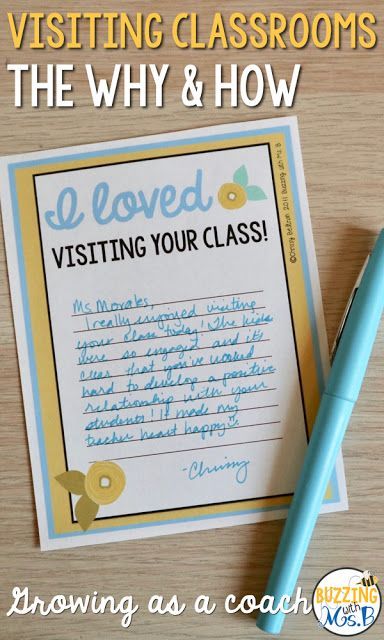 VISITING CLASSROOMS
THE WHY & HOW
I loved
VISITING YOUR CLASS!
©Chrissy Beltran 2017 Buzzing with Ms. B
Ms. Morales,
I really enjoyed visiting
your class today! The kids
were so engaged and it's
clear that you've worked
hard to develop a positive
relationship with your
students! It made my
teacher heart happy
-Chrissy
Growing as a coach
BUZZING
with
Ms.B